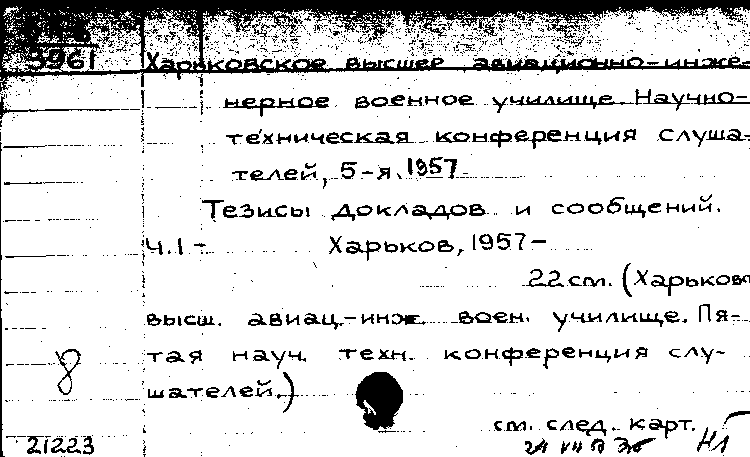 3961
Харьковское высшее авиационно-инже-
нерное военное училище. Научно-
техническая конференция слуша-
телей, 5-я. 1957
Тезисы докладов и сообщений.
Ч.1- Харьков, 1957-
22 см. (Харьков
высш. авиац.-инж. воен. училище. Пя-
тая науч. техн. конференция слу-
шателей.)
8
см. след. карт.
21223